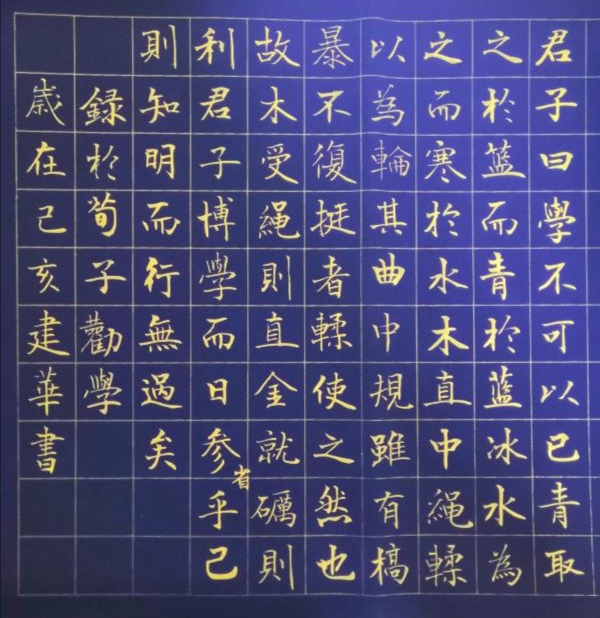 君子曰學不可以已青取
之於籃而青於藍冰水為
之而寒於水木直中繩輮
以為輪其曲中規雖有槁
暴不復挺者輮使之然也
故木受繩則直金就礪則
利君子博學而日参省乎己
則知明而行無過矣
録於荀子勸學
歲在己亥建華書